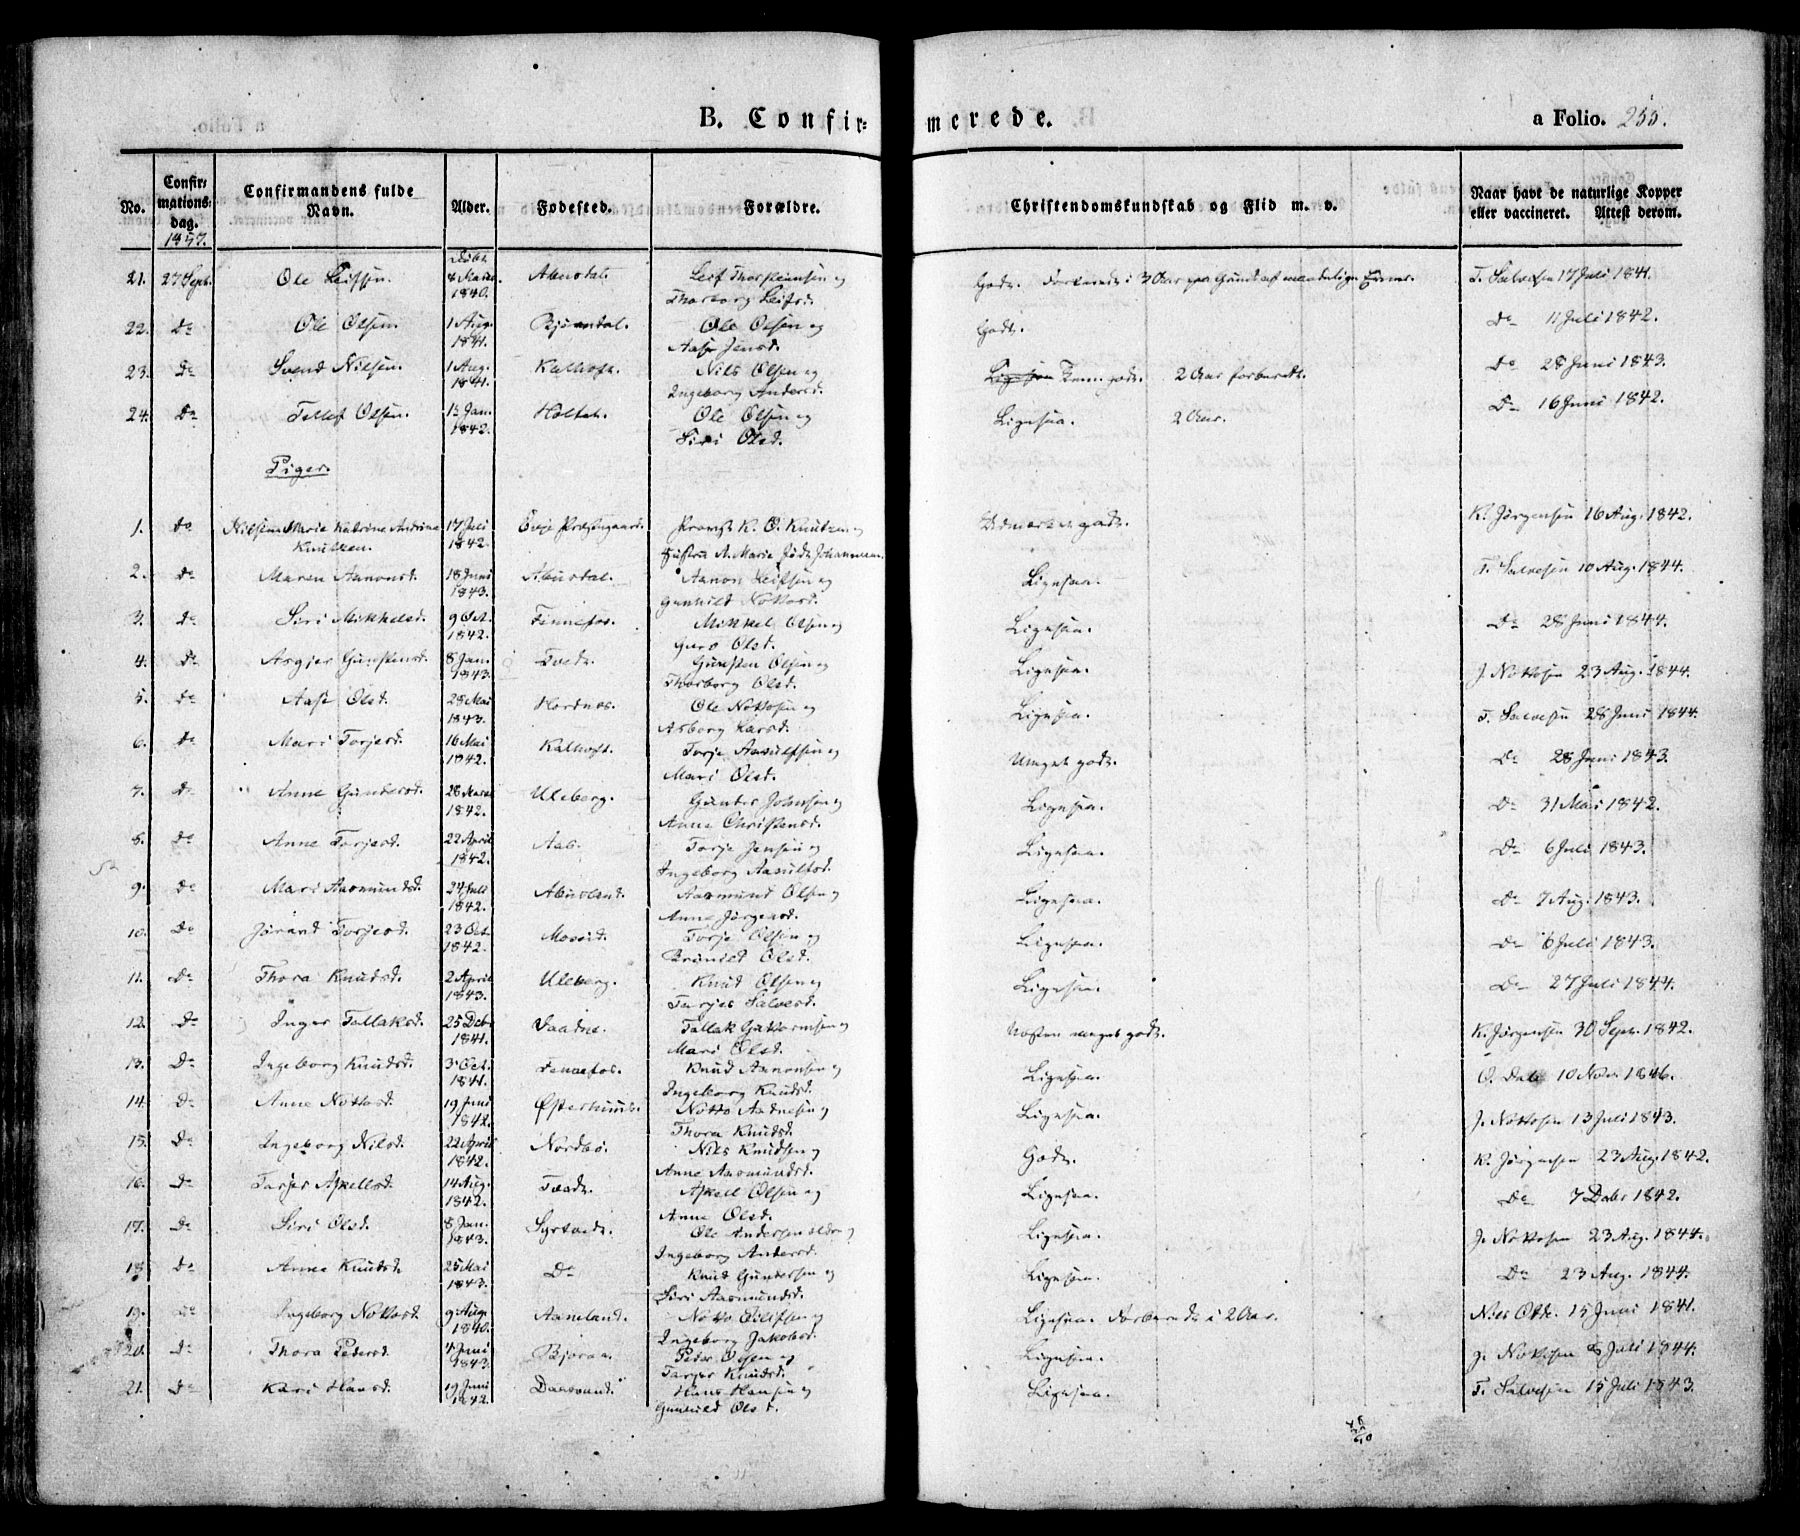 B. Confir- merede.
a Folio. 255.
No. Confirmationsdag. 1857. Confirmandens fulde Navn. Alder. Fødested. Forældre. Christendomskundskab og Flid m. v. Naar havt de naturlige Kopper eller vaccineret. Attest derom.
21. 27 Sept. Ole Leifsen. 1840. Abusdal. Leif Thorsteinsen og Godt. T. Salvesen 17 Juli 1841.
Thorborg Leifsd.
22. Do Ole Olsen. 1 Aug. 1841. Bjorndal. Ole Olsen og Godt. Do 11 Juli 1842.
Aase Jensd.
23. Do Svend Nilsen. 1 Aug. 1841. Kalhoft. Nils Olsen og godt. 2 Aar forberedt. Do 28 Juni 1843.
Ingeborg Andersd.
24. Do Tellef Olsen. 12 Jan. 1842. Holtet. Ole Olsen og Ligesaa. 2 Aar. Do 16 Juni 1842.
Siri Olsd.
Piger.
1. Do Marie Katrine Andrine Knutzen. 17 Juli 1842. Evje Præstegaard. Provst K. O. Knutzen og godt. K. Jørgensen 16 Aug. 1842.
Hustru A. Marie født Johannesen.
2. Do Maren Aanonsd. 18 Juni 1843. Abusdal. Aanon Leifsen og Ligesaa. T. Salvesen 10 Aug. 1844.
Gunhild Nottosd.
3. Do Siri Mikkelsd. 9 Oct. 1842. Fennefos. Mikkel Olsen og Ligesaa. Do 28 Juni 1844.
Guro Olsd.
4. Do Asgjer Gunstensd. 8 Jan. 1843. Tvedt. Gunsten Olsen og Ligesaa. J. Nottosen 23 Aug. 1844.
Thorborg Olsd.
5. Do Aase Olsd. 28 Mai 1843. Hordnes. Ole Nottosen og Ligesaa. T. Salvesen 28 Juni 1844.
Asborg Larsd.
6. Do Mari Torjesd. 16 Mai 1842. Kalhoft. Torje Aasulfsen og Meget godt. Do 28 Juni 1843.
Mari Olsd.
7. Do Anne Gundersd. 28 Marts 1842. Uleberg. Gunder Johnsen og Ligesaa. Do 31 Mai 1842.
Anne Christensd.
8. Do Anne Torjesd. 22 April 1842. Aas. Torje Jensen og Ligesaa. Do 6 Juli 1843.
Ingeborg Aasulfsd.
9. Do Mari Aasmundsd. 24 Juli 1842. Abusland. Aasmund Olsen og Ligesaa. Do 7 Aug. 1843.
Anne Jørgensd.
10. Do Jørand Torjesd. 23 Oct. 1842. Moseid. Torje Olsen og Ligesaa. Do 6 Juli 1843.
Brønild Olsd.
11. Do Thora Knudsd. 2 April 1843. Uleberg. Knud Olsen og Ligesaa. Do 27 Juli 1844.
Tarjer Salvesd.
12. Do Inger Tallaksd. 25 Debr 1841. Tallak Guttormsen og meget godt. K. Jørgensen 30 Sept. 1842.
Mari Olsd.
13. Do Ingeborg Knudsd. 3 Oct. 1841. Fennefos. Knud Aanonsen og Ligesaa. O. Dale 10 Nov. 1846.
Ingeborg Knudsd.
14. Do Anne Nottosd. 19 Juni 1842. Østerhuus. Notto Aadnesen og Ligesaa. J. Nottosen 13 Juli 1843.
Thora Knudsd.
15. Do Ingeborg Nilsd. 22 April 1842. Nordbø. Nils Knudsen og Godt. K. Jørgensen 23 Aug. 1842.
Anne Aasmundsd.
16. Do Tarjer Askellsd. 14 Aug. 1842. Tvedt. Askell Olsen og Ligesaa. Do 7 Debr 1842.
Anne Olsd.
17. Do Siri Olsd. 8 Jan. 1843. Syrtveit. Ole Andersen ældre og Ligesaa. J. Nottosen 23 Aug. 1844.
Ingeborg Andersd.
18. Do Anne Knudsd. 25 Mai 1843. Do Knud Gundersen og Ligesaa. Do 23 Aug. 1844.
Siri Aasmundsd.
19. Do Ingeborg Nottosd. 9 Aug. 1840. Aaneland. Notto Eilifsen og Ligesaa. Forberedt i 2 Aar. 15 Juni 1841.
Ingeborg Jakobsd.
20. Do Thora Pedersd. 4 Juni 1843. Bjoraa. Peder Olsen og Ligesaa. J. Nottosen Juli 1844.
Tarjer Knudsd.
21. Do Kari Hansd. 19 Juni 1842. Daasvand. Hans Hansen og Ligesaa. T. Salvesen 15 Juli 1843.
Gunhild Olsd.